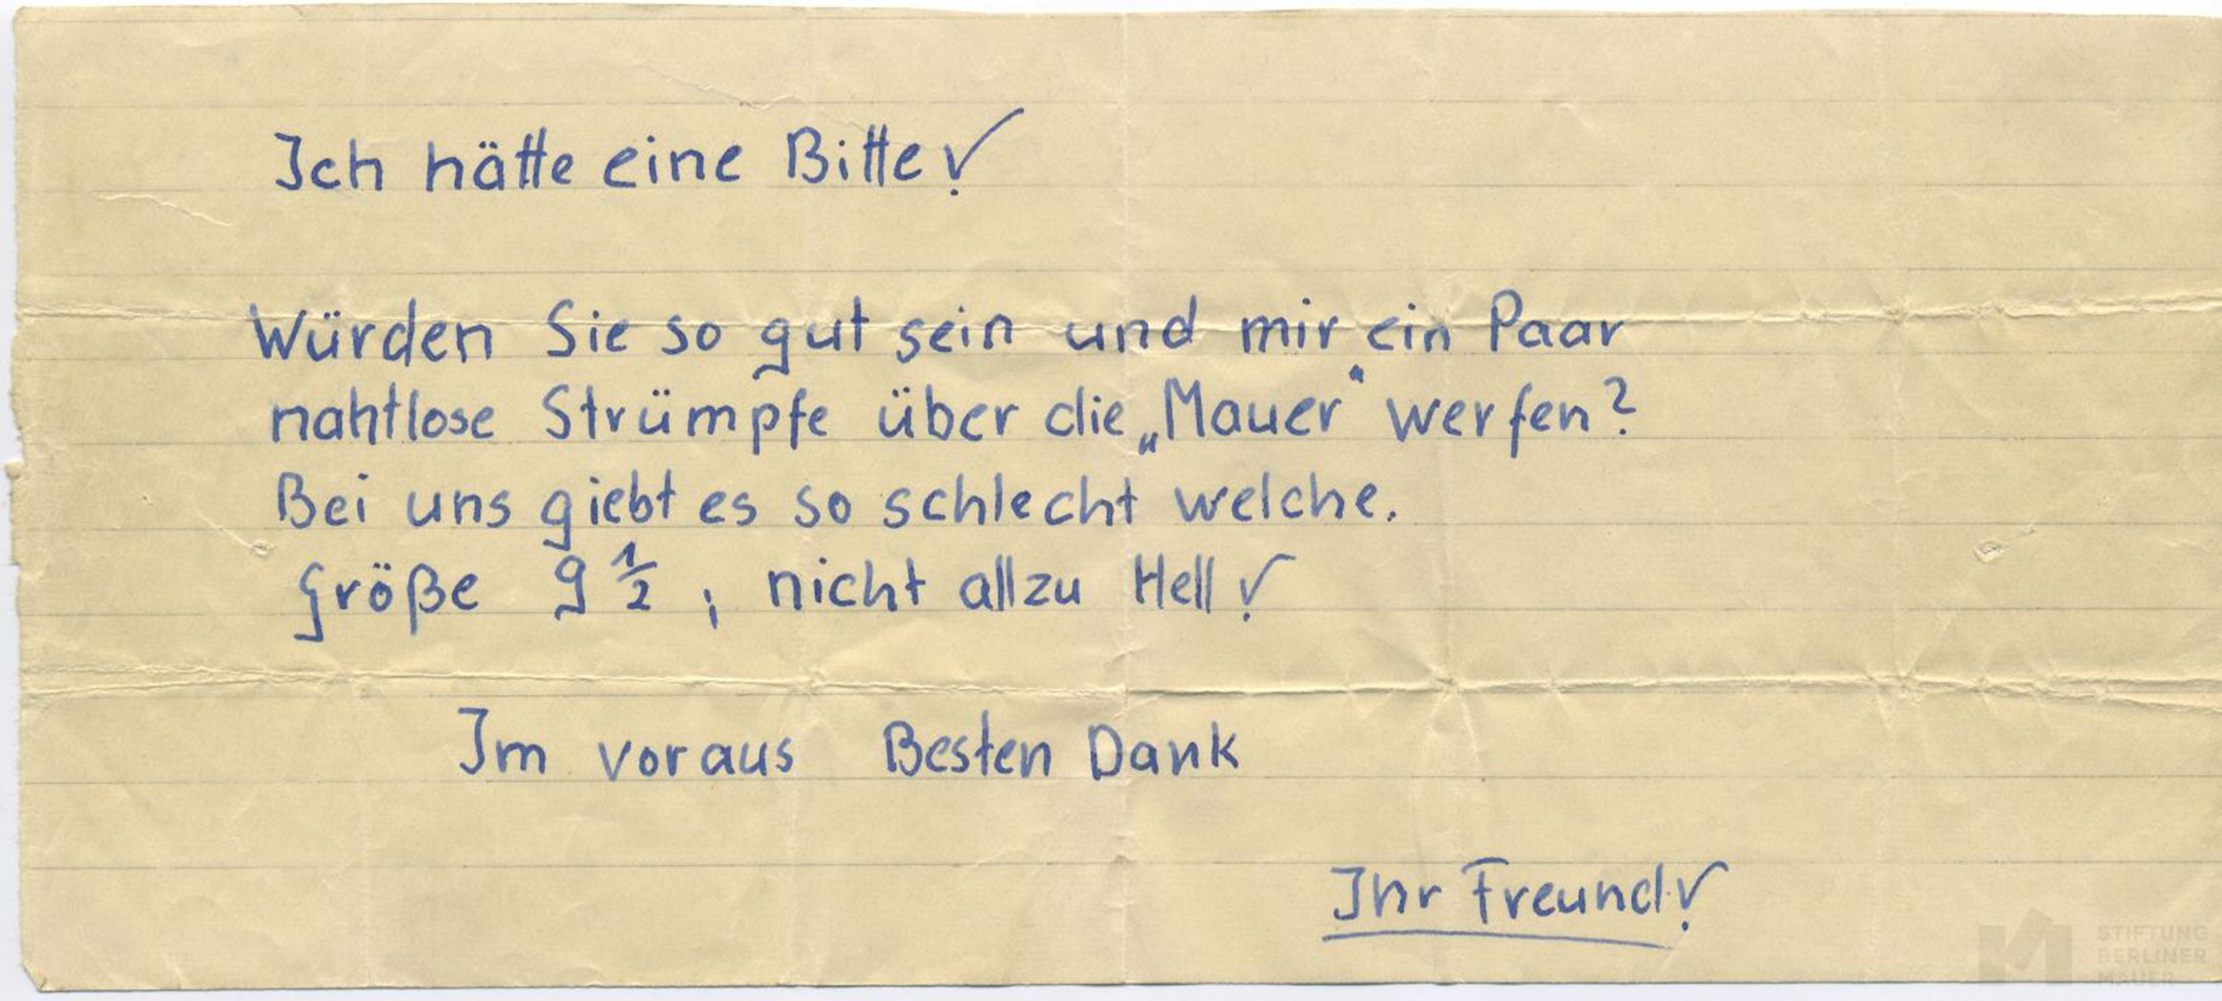 Ich hätte eine Bitte!
Würden Sie so gut sein und mir ein Paar
nahtlose Strümpfe über die „Mauer“ werfen?
Bei uns giebt es so schlecht welche.
Größe 9 1/2, nicht allzu Hell!
Im voraus Besten Dank
Ihr Freund!
STIFTUNG
BERLINER
MAUER